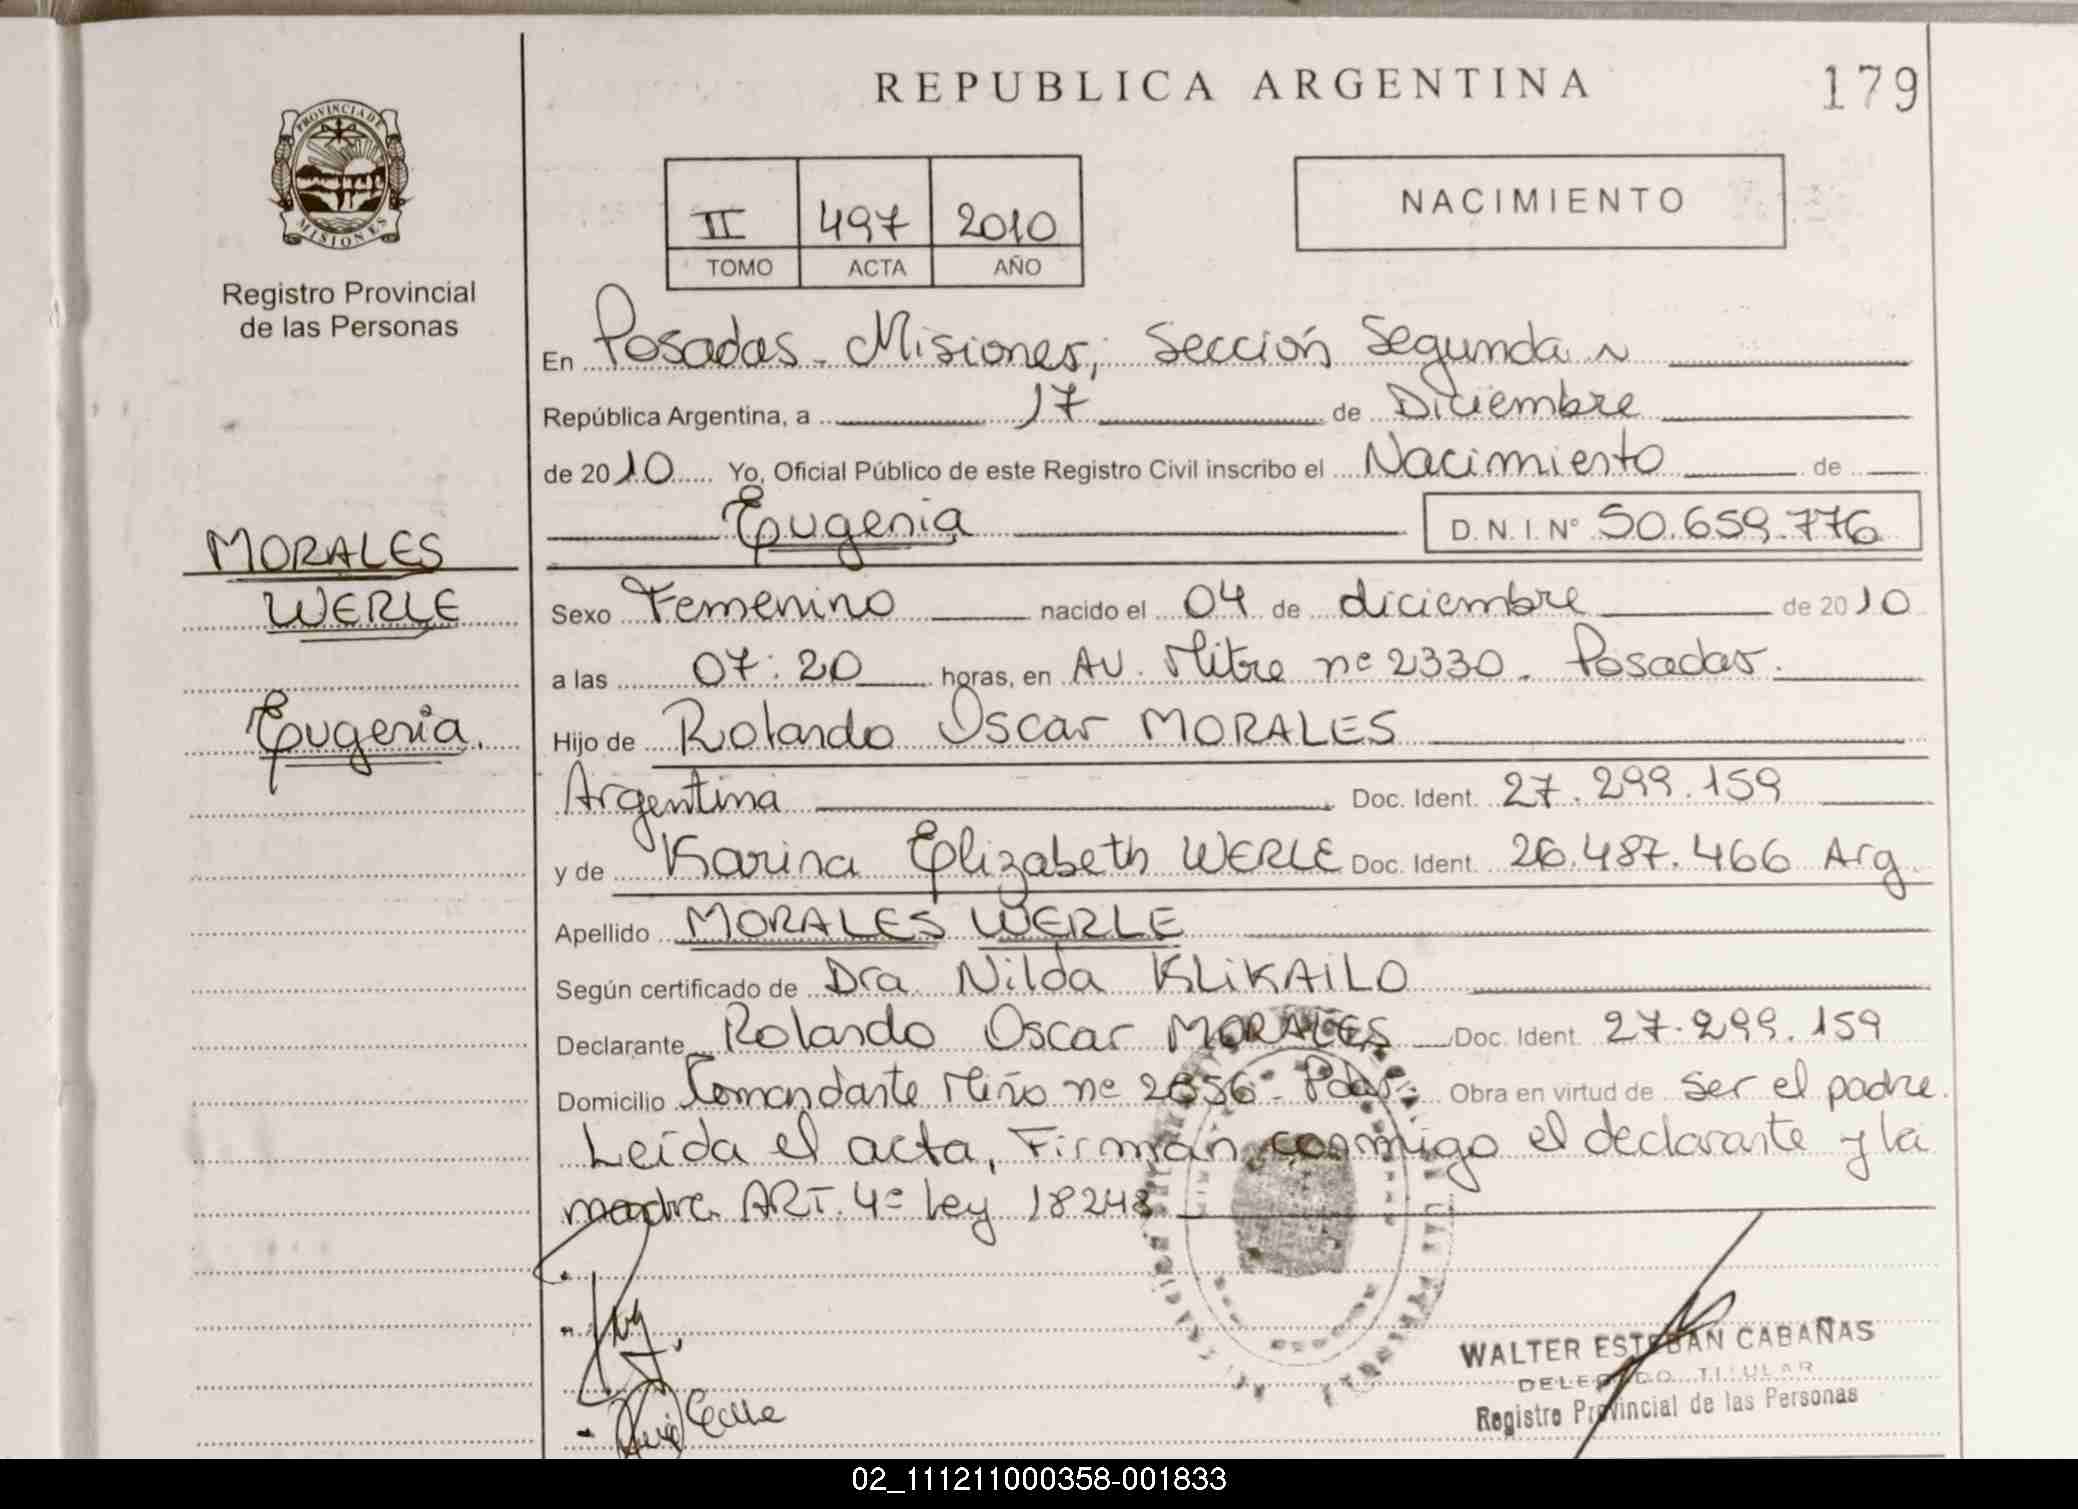 REPUBLICA ARGENTINA
179
PROVINCIA DE
MISIONES
Registro Provincial
de las Personas
II 497 2010
TOMO ACTA AÑO
NACIMIENTO
En Posadas - Misiones, Sección Segunda
República Argentina, a 17 de Diciembre
de 2010 Yo, Oficial Público de este Registro Civil inscribo el Nacimiento de
Eugenia D.N.I. Nº 50.659.776
MORALES
WERLE
Eugenia.
Sexo Femenino nacido el 04 de diciembre de 2010
a las 07:20 horas, en AV. Mitre nº 2330. Posadas.
Hijo de Rolando Oscar MORALES
Argentina Doc. Ident. 27.299.159
y de Karina Elizabeth WERLE Doc. Ident. 26.487.466 Arg
Apellido MORALES WERLE
Según certificado de Dra Nilda KLIKAILO
Declarante Rolando Oscar MORALES Doc. Ident. 27.299.159
Domicilio Comandante Miño nº 2656 - Pdas Obra en virtud de ser el padre.
Leída el acta, Firman conmigo el declarante y la
madre. ART. 4º Ley 18248
WALTER ESTEBAN CABAÑAS
DELEGADO TITULAR
Registro Provincial de las Personas
02_111211000358-001833